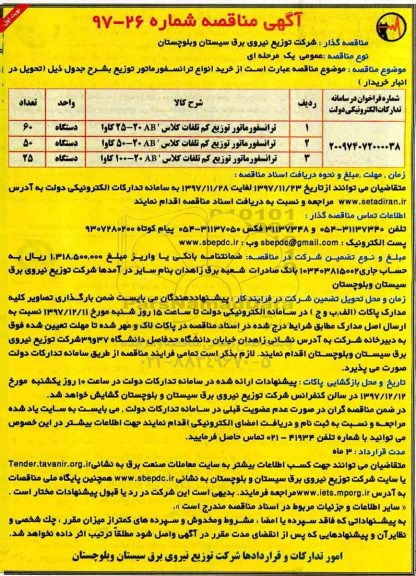 نوبت اول
آگهی مناقصه شماره ۲۶-۹۷
مناقصه گذار : شرکت توزیع نیروی برق سیستان وبلوچستان
نوع مناقصه :عمومی یک مرحله ای
موضوع مناقصه : موضوع مناقصه عبارت است از خرید انواع ترانسفورماتور توزیع بشرح جدول ذیل (تحویل در انبار خریدار )
شماره فراخوان در سامانه تدارکات الکترونیکی دولت | ردیف | شرح کالا | واحد | تعداد
۲۰۰۹۷۴۰۷۲۰۰۰۰۳۸
۱ | ترانسفورماتور توزیع کم تلفات کلاس ' AB ۲۰-۲۵ کاوا | دستگاه | ۶۰
۲ | ترانسفورماتور توزیع کم تلفات کلاس ' AB ۲۰-۵۰ کاوا | دستگاه | ۵۰
۳ | ترانسفورماتور توزیع کم تلفات کلاس ' AB ۲۰-۱۰۰ کاوا | دستگاه | ۲۵
زمان , مهلت ,مبلغ و نحوه دریافت اسناد مناقصه :
متقاضیان می توانند ازتاریخ ۱۳۹۷/۱۱/۲۳ لغایت ۱۳۹۷/۱۱/۲۸ به سامانه تدارکات الکترونیکی دولت به آدرس
www.setadiran.ir مراجعه و نسبت به دریافت اسناد مناقصه اقدام نمایند
اطلاعات تماس مناقصه گذار :
تلفن ۳۱۱۳۷۳۴۰-۰۵۴ و ۳۱۱۳۷۳۴۸ فکس ۳۱۱۳۷۰۵۰-۰۵۴ پیام کوتاه ۹۳۰۷۲۸۰۲۰۰
پست الکترونیک : sbepdc@gmail.com وب : www.sbepdc.ir
مبلغ و نوع تضمین شرکت در مناقصه: ضمانتنامه بانکی یا واریز مبلغ ۱,۳۱۸,۵۰۰,۰۰۰ ریال به
حساب جاری ۱۰۳۴۰۳۸۱۵۰۰۲ بانک صادرات شعبه برق زاهدان بنام سایر در آمدها شرکت توزیع نیروی برق
سیستان وبلوچستان
زمان و محل تحویل تضمین شرکت در فرایند کار : پیشنهاددهندگان می بایست ضمن بارگذاری تصاویر کلیه
مدارک پاکات (الف,ب و ج ) در سامانه الکترونیکی دولت تا ساعت ۱۵ روز شنبه مورخ ۱۳۹۷/۱۲/۱۱ نسبت به
ارسال اصل مدارک مطابق شرایط درج شده در اسناد مناقصه در پاکات لاک و مهر شده تا مهلت تعیین شده فوق
به دبیرخانه شرکت به آدرس نشانی زاهدان خیابان دانشگاه حدفاصل دانشگاه ۳۷و۳۹ شرکت توزیع نیروی
برق سیستان وبلوچستان اقدام نمایند. لازم بذکر است تمامی فرایند مناقصه از طریق سامانه تدارکات دولت
صورت می پذیرد.
تاریخ و محل بازگشایی پاکات : پیشنهادات ارائه شده در سامانه تدارکات دولت در ساعت ۱۰ روز یکشنبه مورخ
۱۳۹۷/۱۲/۱۲ در سالن کنفرانس شرکت توزیع نیروی برق سیستان و بلوچستان گشایش خواهد شد.
در ضمن مناقصه گران در صورت عدم عضویت قبلی در سامانه تدارکات دولت , می بایست به سایت یاد شده
مراجعه و نسبت به ثبت نام و دریافت امضای الکترونیکی اقدام نمایند جهت اطلاعات بیشتر در این خصوص
می توانید با شماره تلفن ۴۱۹۳۴ - ۰۲۱ تماس حاصل فرمایید.
مدت قرارداد : ۳ ماه
متقاضیان می توانند جهت کسب اطلاعات بیشتر به سایت معاملات صنعت برق به نشانی Tender.tavanir.org.ir
یا سایت شرکت توزیع نیروی برق سیستان و بلوچستان به نشانی www.sbepdc.ir همچنین پایگاه ملی مناقصات
به آدرس www.iets.mporg.ir مراجعه فرمایند. بدیهی است این شرکت در رد یا قبول پیشنهادات مختار است .
« سایر اطلاعات و جزئیات مربوط در اسناد مناقصه مندرج است ».
به پیشنهاداتی که فاقد سپرده یا امضا , مشروط ومخدوش و سپرده های کمتراز میزان مقرر , چک شخصی و
نظایرآن و پیشنهادهایی که پس از انقضای مدت مقرر در آگهی واصل شود مطلقاً ترتیب اثر داده نخواهد شد.
امور تدارکات و قراردادها شرکت توزیع نیروی برق سیستان وبلوچستان